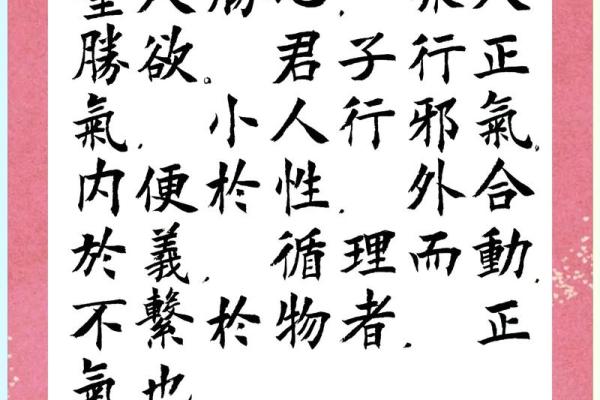 聖人勝心，衆人
勝欲。君子行正
氣，小人行邪氣。
内便於性，外合
於義，循理而動，
不繫於物者，正
氣也